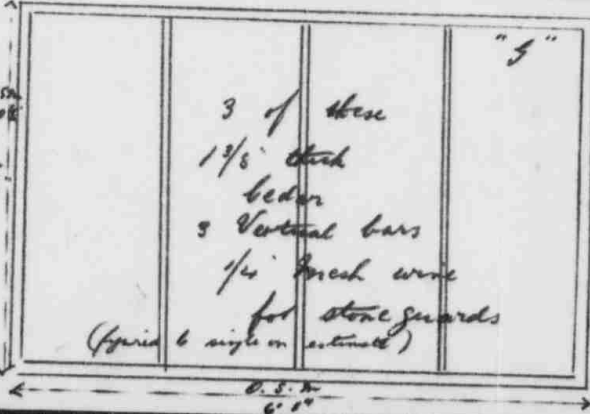 "G"
3 of these
1 3/8" thick
Cedar
3 Vertical bars
1/4" mesh wire
for stone guards
(figured 6 single on estimate)
O.S.M